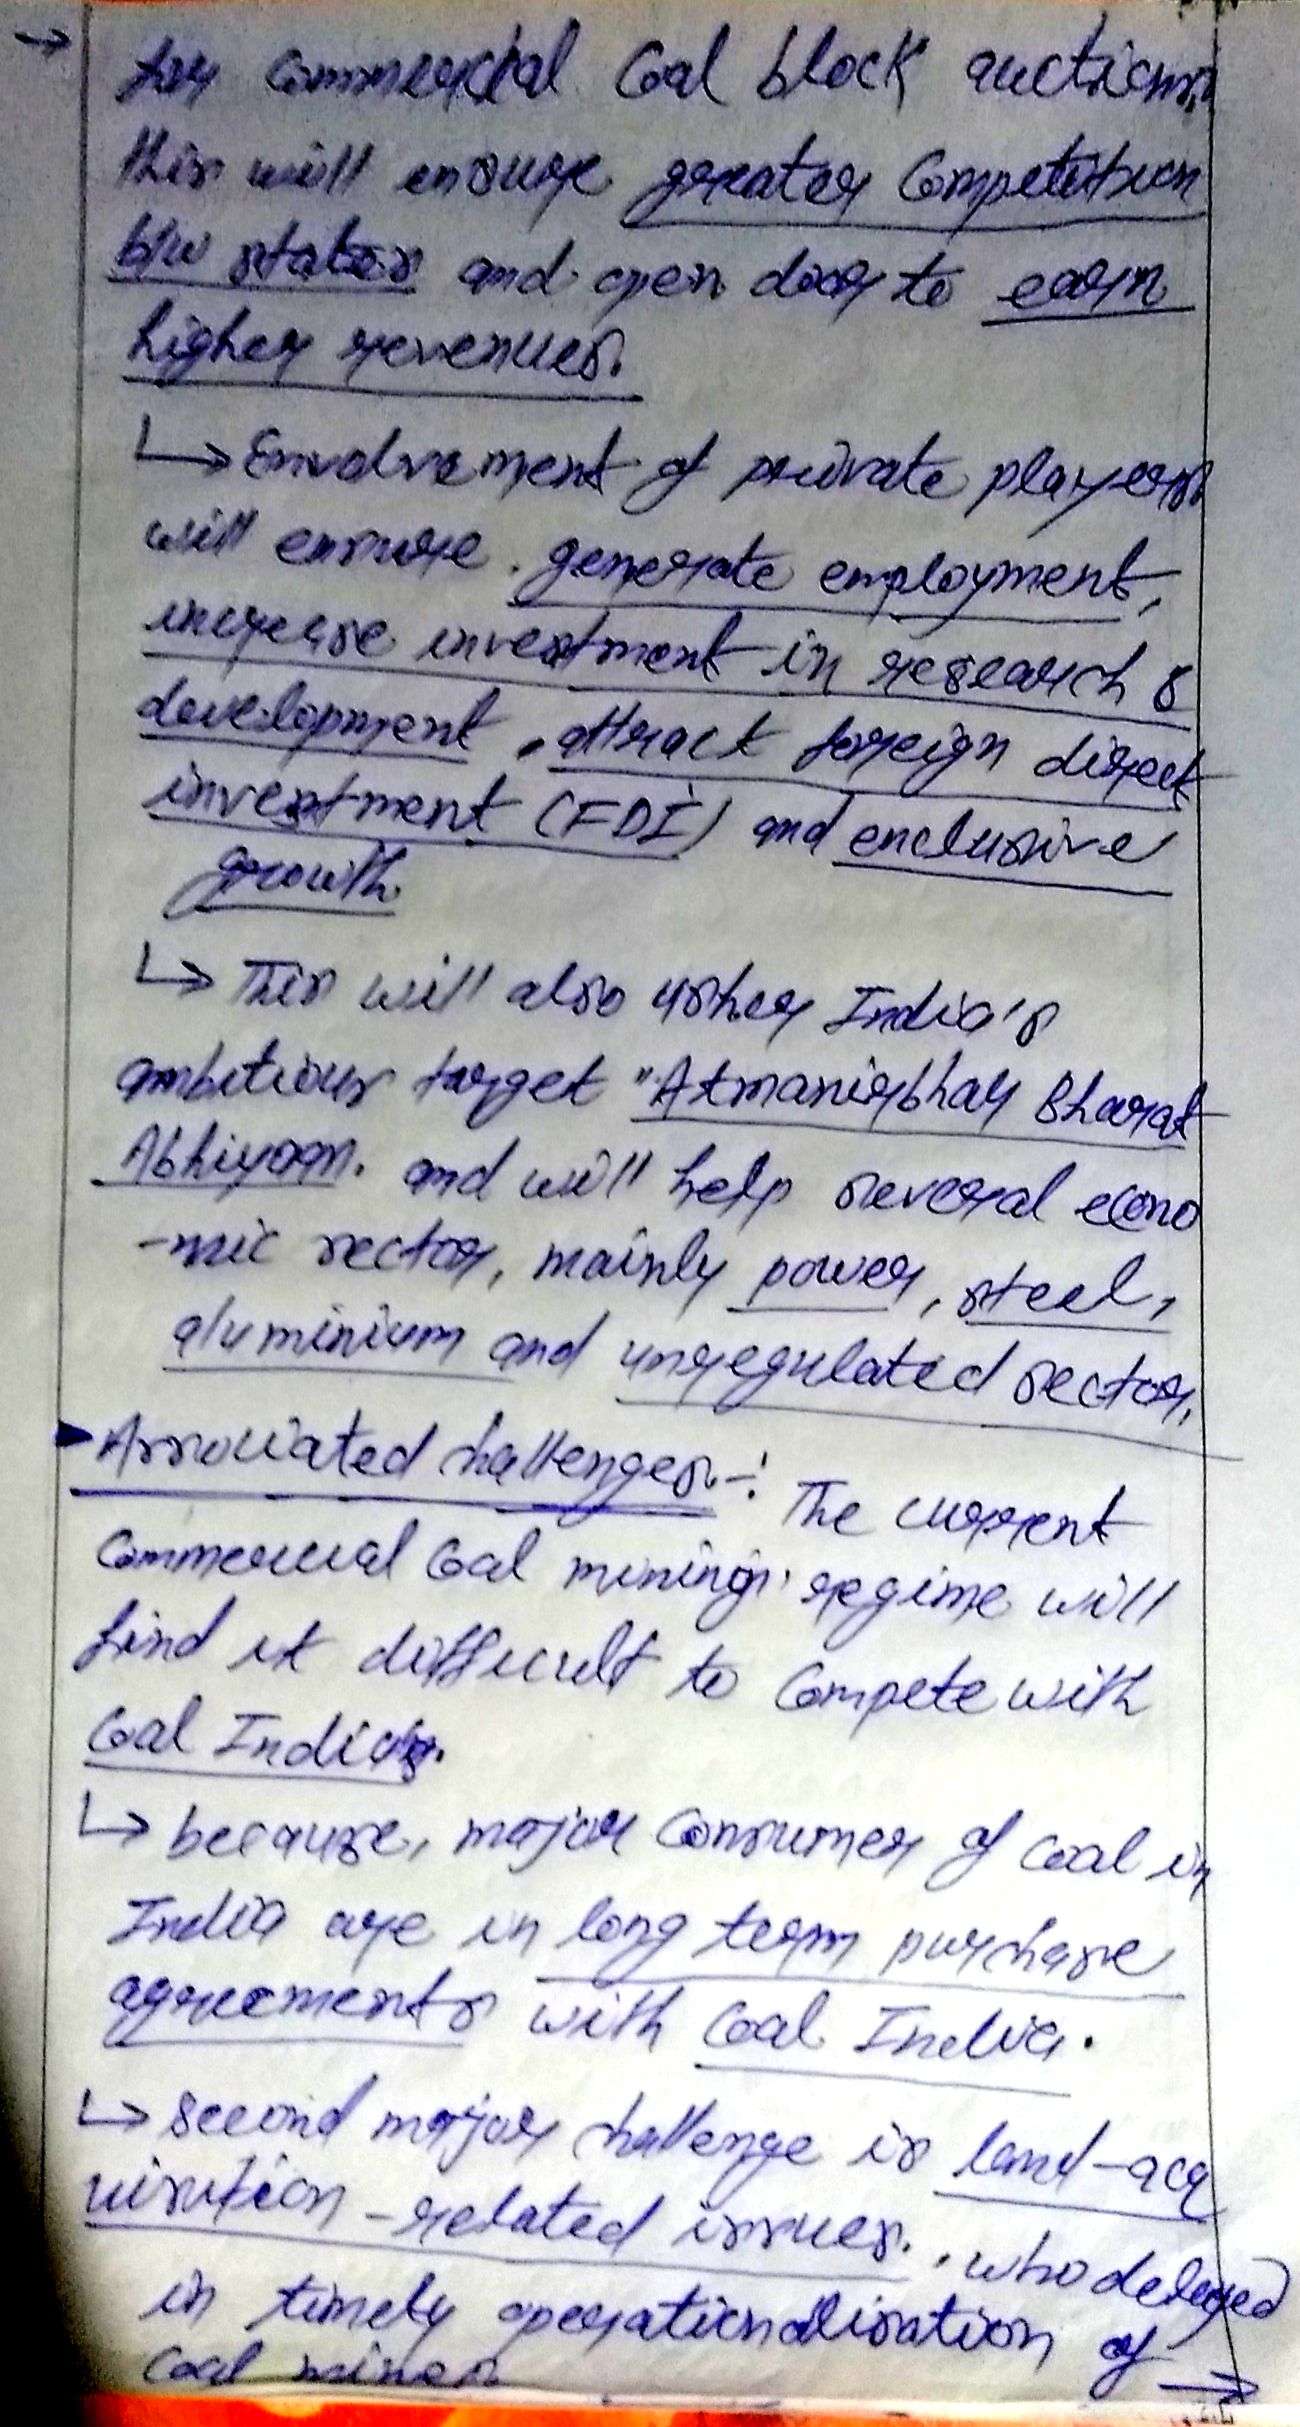 → for commercial Coal block auctions,
this will ensure greater Competition
b/w states and open door to earn
higher revenues.
↳ Envolvement of private players
will ensure generate employment,
increase investment in research &
development, attract foreign direct
investment (FDI) and enclusive
growth.
↳ This will also usher India's
ambitious target "Atmanirbhar Bharat
Abhiyaan. and will help several econo
-mic sector, mainly power, steel,
aluminium and unregulated sector,
Associated challenges -: The current
Commercial Coal mining regime will
find it difficult to Compete with
Coal India's.
↳ because, major Consumer of Coal in
India are in long term purchase
agreements with Coal India.
↳ Second major challenge is land-acq
uisition-related issues. who delayed
in timely operationalisation of →
Coal mines